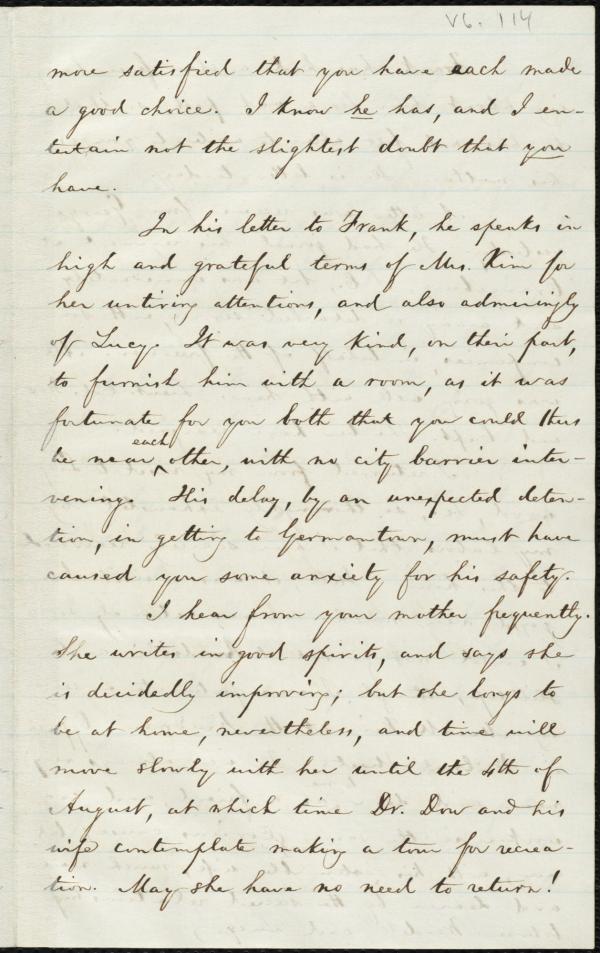 V6. 114
more satisfied that you have each made
a good choice. I know he has, and I en-
tertain not the slightest doubt that you
have.
In his letter to Frank, he speaks in
high and grateful terms of Mrs. Kim for
her untiring attentions, and also admiringly
of Lucy. It was very kind, on their part,
to furnish him with a room, as it was
fortunate for you both that you could thus
be near each other, with no city barrier inter-
vening. His delay, by an unexpected deten-
tion, in getting to Germantown, must have
caused you some anxiety for his safety.
I hear from your mother frequently.
She writes in good spirits, and says she
is decidedly improving; but she longs to
be at home, nevertheless, and time will
move slowly with her until the 4th of
August, at which time Dr. Dow and his
wife contemplate making a tour for recrea-
tion. May she have no need to return!